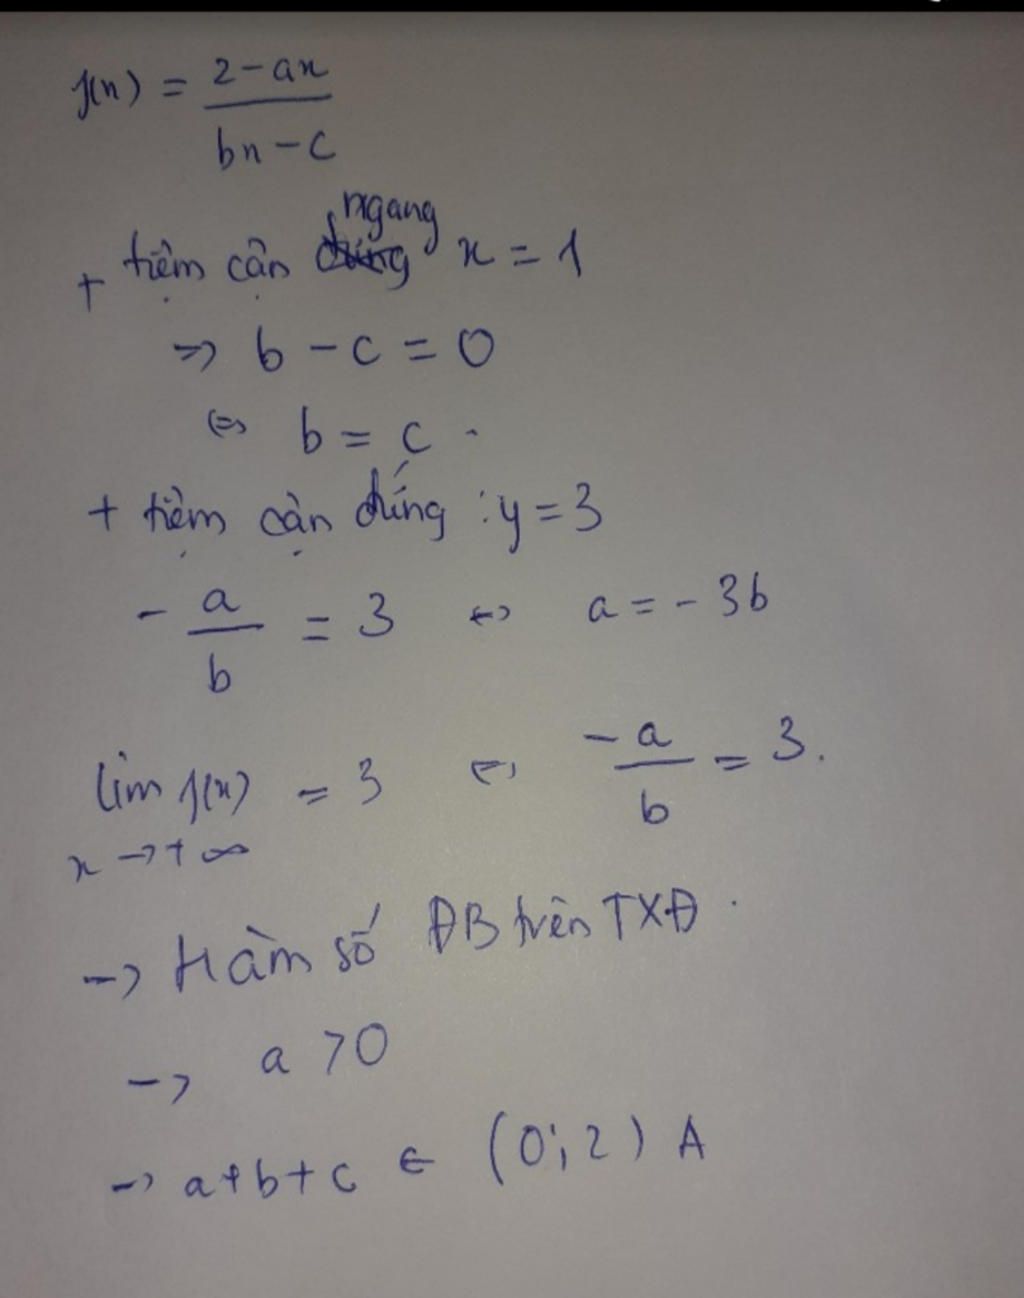 f(x) = 2-ax / bx-c
+ tiệm cận ngang x = 1
=> b - c = 0
<=> b = c .
+ tiệm cận đứng : y = 3
- a/b = 3 <=> a = - 3b
lim f(x) = 3 <=> -a/b = 3.
x -> + ∞
-> Hàm số ĐB trên TXĐ .
-> a > 0
-> a + b + c ∈ (0; 2) A